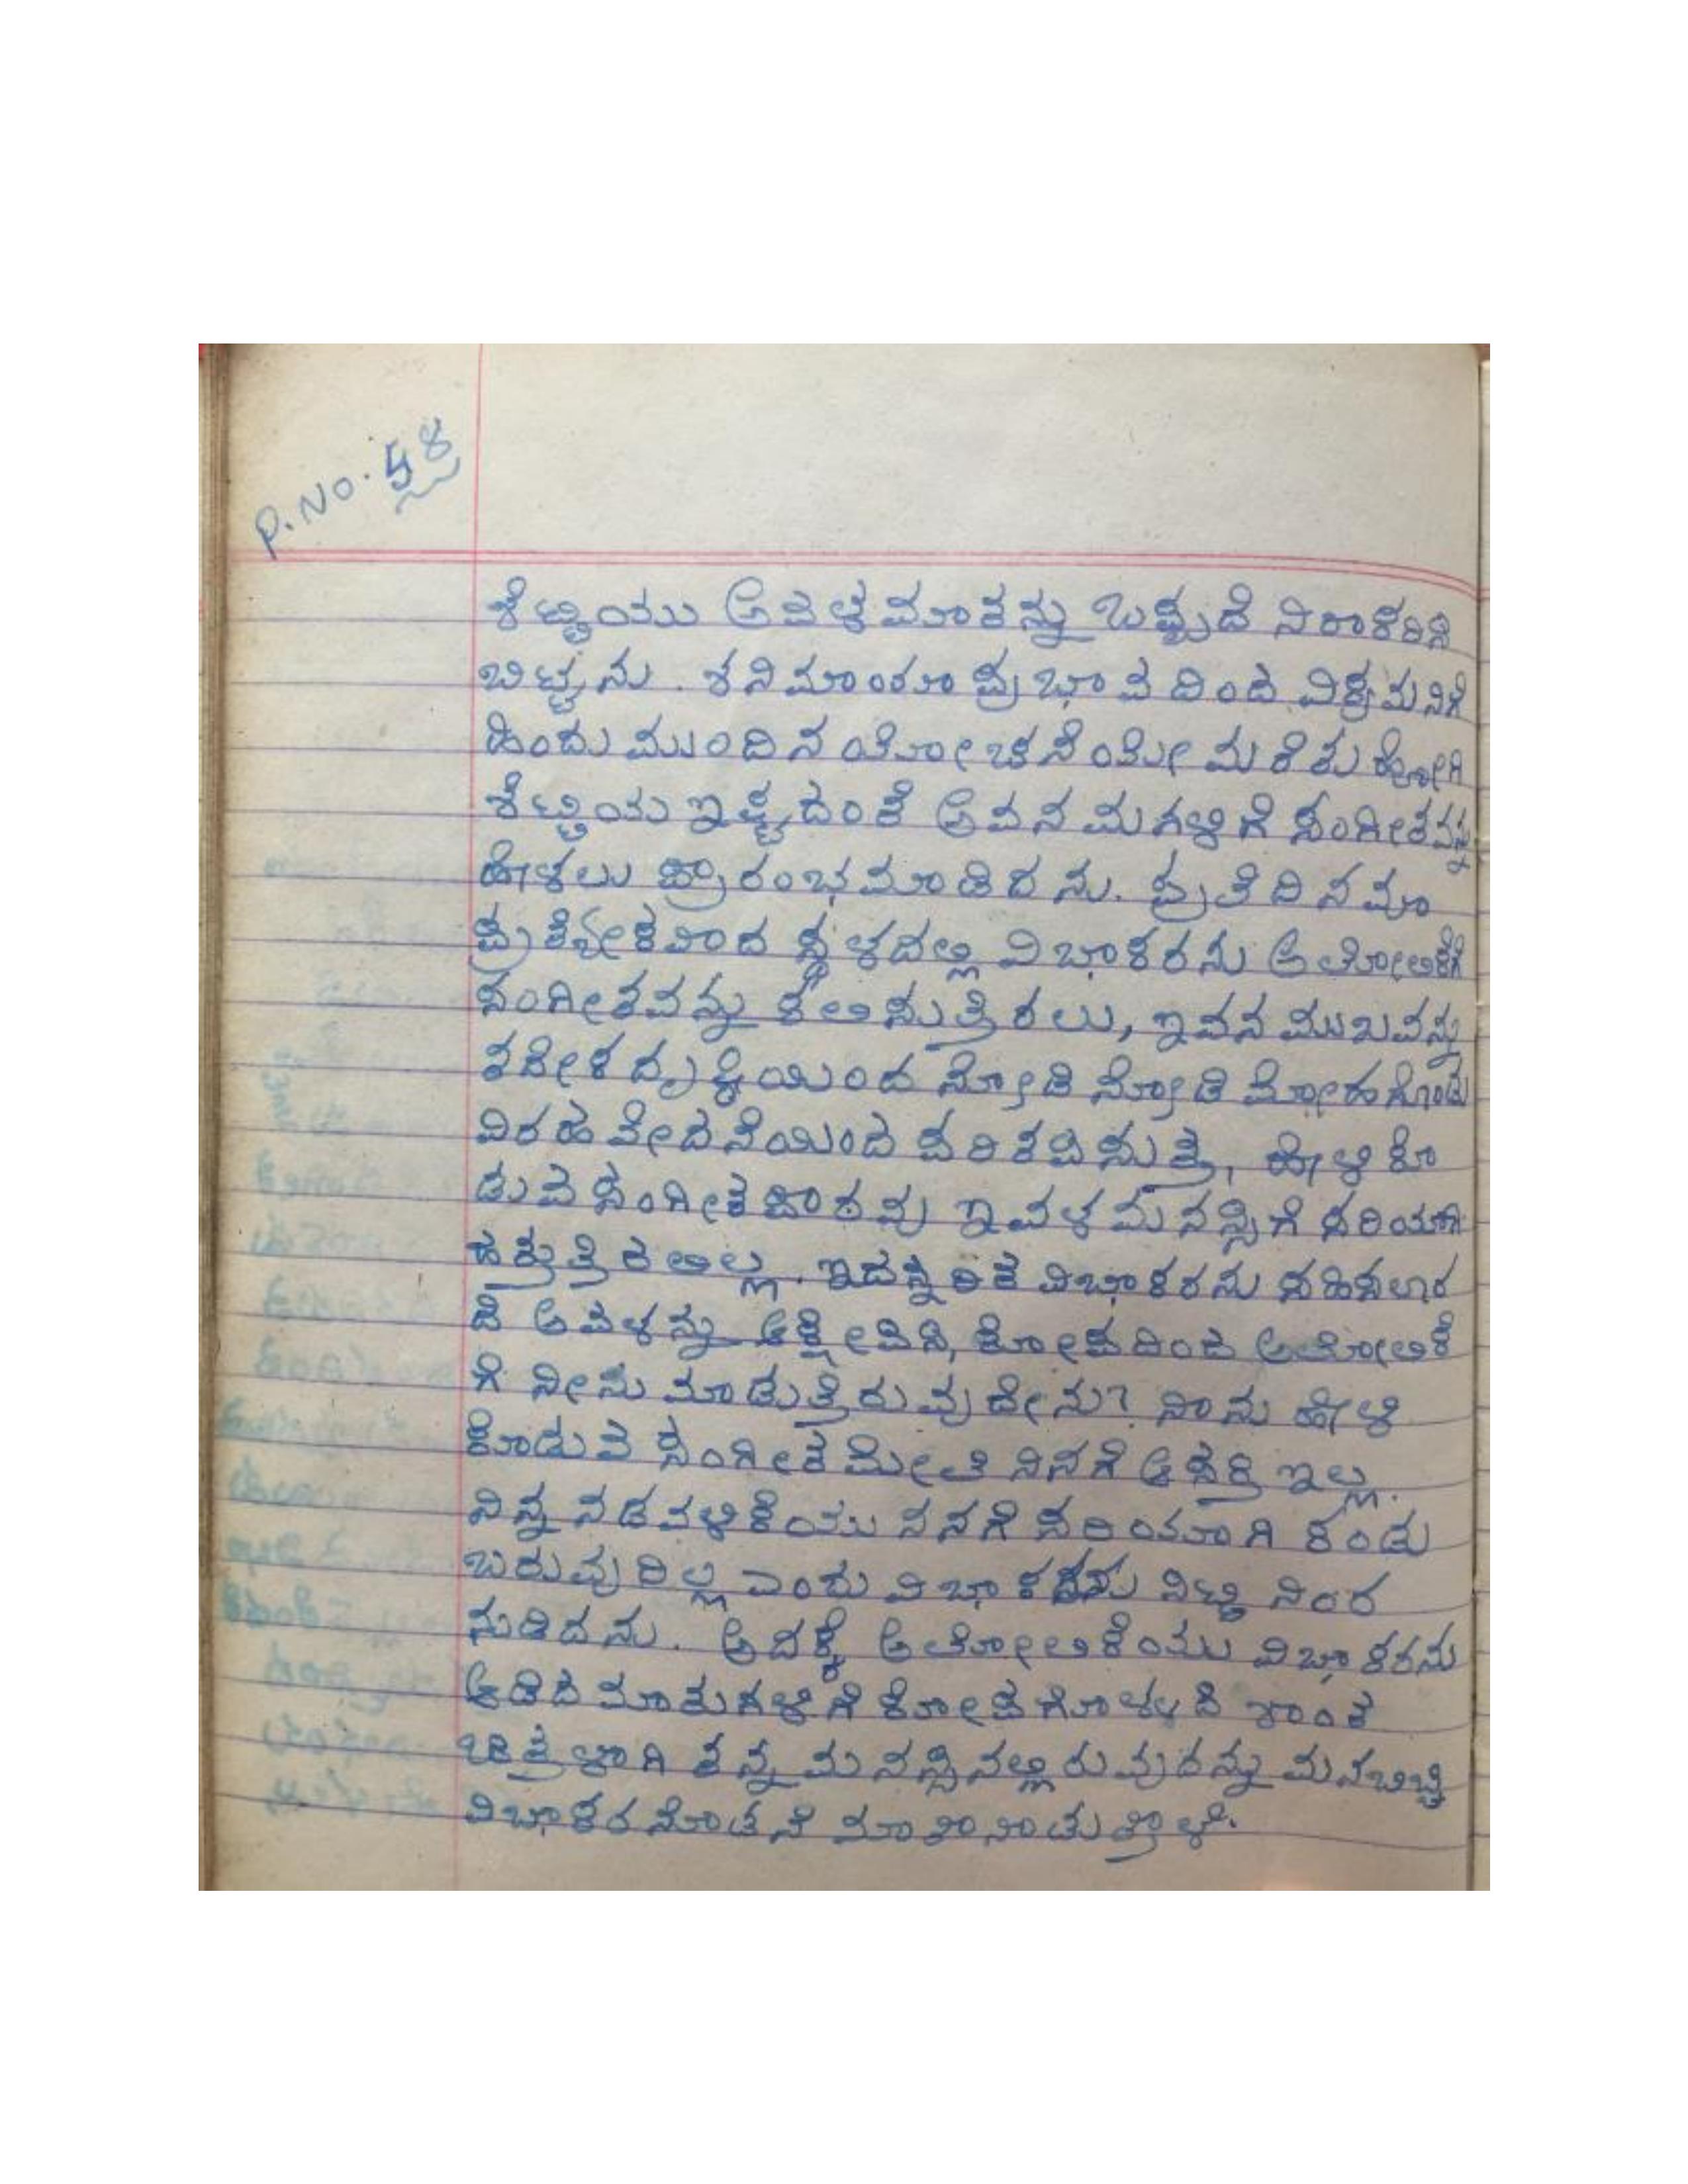 P.No. 58
ಶೆಟ್ಟಿಯು ಅವಳ ಮಾತನ್ನು ಒಪ್ಪದೆ ನಿರಾಕರಿಸಿ
ಬಿಟ್ಟನು. ಶನಿಮಾಯಾ ಪ್ರಭಾವದಿಂದ ವಿಕ್ರಮನಿಗೆ
ಹಿಂದು ಮುಂದಿನ ಯೋಚನೆಯೇ ಮರೆತು ಹೋಗಿ
ಶೆಟ್ಟಿಯ ಇಷ್ಟದಂತೆ ಅವನ ಮಗಳಿಗೆ ಸಂಗೀತವನ್ನು
ಹೇಳಲು ಪ್ರಾರಂಭಮಾಡಿದನು. ಪ್ರತಿದಿನವೂ
ಪ್ರತ್ಯೇಕವಾದ ಸ್ಥಳದಲ್ಲಿ ವಿಭಾಕರನು ಆಲೋಲಿಕೆಗೆ
ಸಂಗೀತವನ್ನು ಕಲಿಸುತ್ತಿರಲು, ಇವನ ಮುಖವನ್ನು
ದೃಷ್ಟಿಯಿಂದ ನೋಡಿ ನೋಡಿ ಮೋಹಗೊಂಡು
ವಿರಹ ವೇದನೆಯಿಂದ ಪರಿತಪಿಸುತ್ತ, ಹೇಳಿ ಕೊ
ಡುವ ಸಂಗೀತ ಪಾಠವು ಇವಳ ಮನಸ್ಸಿಗೆ ಸರಿಯಾಗಿ
ಹತ್ತುತ್ತಿರಲಿಲ್ಲ. ಇದನ್ನರಿತ ವಿಭಾಕರನು ಸಹಿಸಲಾರ
ದೆ ಅವಳನ್ನು ಆಕ್ಷೇಪಿಸಿ, ಕೋಪದಿಂದ ಆಲೋಲಿಕೆ
ಗೆ ನೀನು ಮಾಡುತ್ತಿರುವುದೇನು? ನಾನು ಹೇಳಿ
ಕೊಡುವ ಸಂಗೀತ ಮೇಲೆ ನಿನಗೆ ಆಸಕ್ತಿ ಇಲ್ಲ.
ನಿನ್ನ ನಡವಳಿಕೆಯು ನನಗೆ ಸರಿಯಾಗಿ ಕಂಡು
ಬರುವುದಿಲ್ಲ ಎಂದು ವಿಭಾಕರನು ಸಿಟ್ಟಿನಿಂದ
ನುಡಿದನು. ಅದಕ್ಕೆ ಆಲೋಲಿಕೆಯು ವಿಭಾಕರನು
ಆಡಿದ ಮಾತುಗಳಿಗೆ ಕೋಪಗೊಳ್ಳದೆ ಶಾಂತ
ಚಿತ್ತಳಾಗಿ ತನ್ನ ಮನಸ್ಸಿನಲ್ಲಿರುವುದನ್ನು ಮನಬಿಚ್ಚಿ
ವಿಭಾಕರನೊಡನೆ ಮಾತನಾಡುತ್ತಾಳೆ.